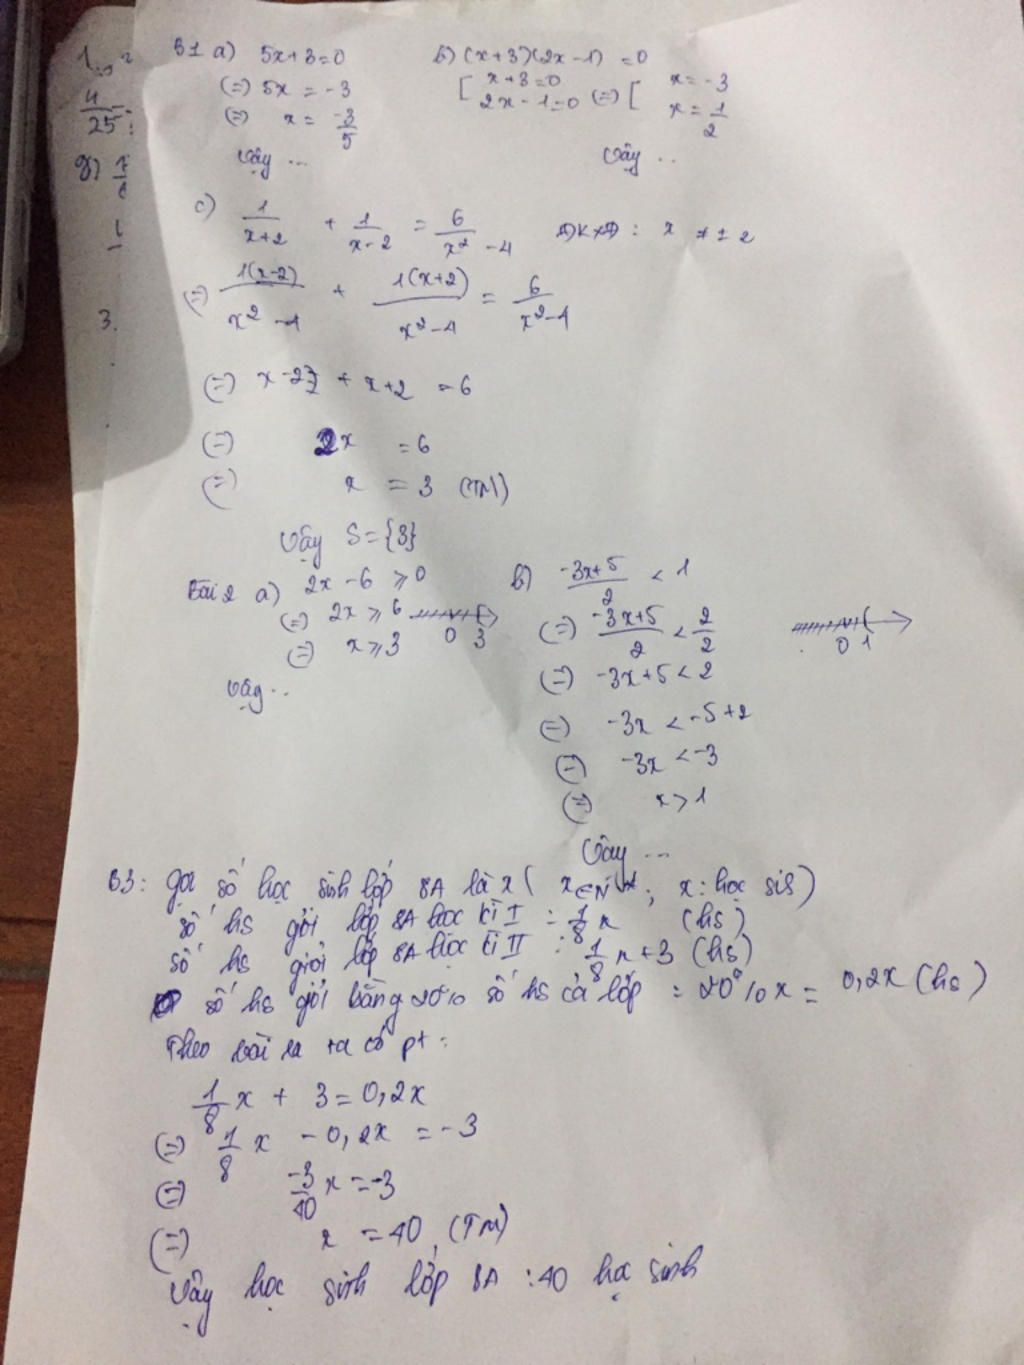 B1 a) 5x+3=0
(=) 5x = -3
(=) x = -3/5
Vậy ...
b) (x+3)(2x-1) = 0
[ x+3=0
2x-1=0 (=) [ x = -3
x = 1/2
Vậy ..
c) 1/(x+2) + 1/(x-2) = 6/(x²-4) ĐKXĐ: x ≠ ±2
(=) 1(x-2)/(x²-4) + 1(x+2)/(x²-4) = 6/(x²-4)
(=) x-2 + x+2 = 6
(=) 2x = 6
(=) x = 3 (TM)
Vậy S={3}
Bài 2 a) 2x-6 ⩾ 0
(=) 2x ⩾ 6
0 3
(=) x ⩾ 3
Vậy ..
b) (-3x+5)/2 < 1
(=) (-3x+5)/2 < 2/2
0 1
(=) -3x+5 < 2
(=) -3x < -5+2
(=) -3x < -3
(=) x > 1
Vậy ...
B3: Gọi số học sinh lớp 8A là x ( x∈N*; x: học sis)
số hs giỏi lớp 8A học kì I = 1/8 x (hs)
số hs giỏi lớp 8A học kì II : 1/8 x+3 (hs)
số hs giỏi bằng 20% số hs cả lớp = 20% x = 0,2x (hs)
Theo bài ra ta có pt:
1/8 x + 3 = 0,2x
(=) 1/8 x - 0,2x = -3
(=) -3/40 x = -3
(=) x = 40 (TM)
Vậy học sinh lớp 8A : 40 học sinh
1.
4/25 =
g)
3.